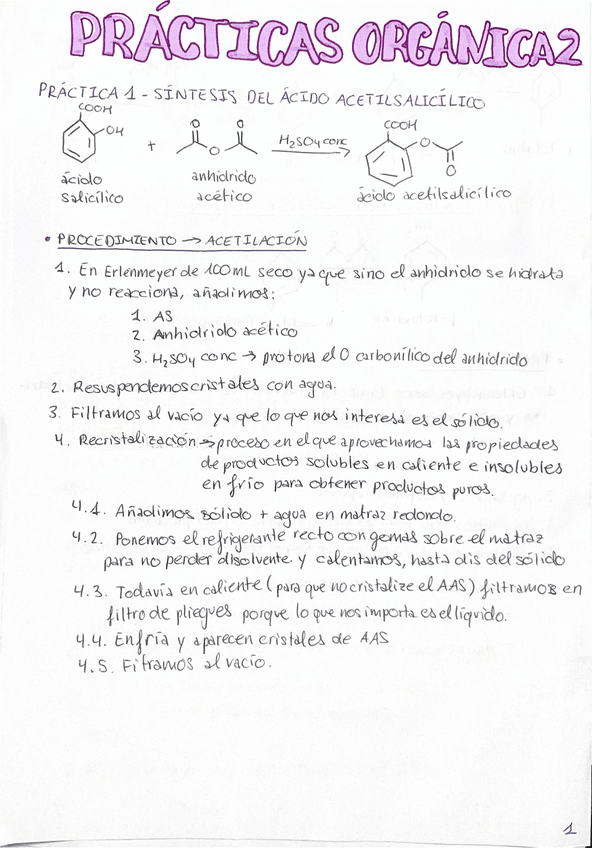 PRÁCTICAS ORGÁNICA2
PRÁCTICA 1 - SÍNTESIS DEL ÁCIDO ACETILSALICÍLICO
COOH
OH
+
O O
O
H2SO4 conc
COOH
O
O
ácido salicílico
anhidrido acético
ácido acetilsalicílico
• PROCEDIMIENTO → ACETILACIÓN
1. En Erlenmeyer de 100mL seco ya que sino el anhidrido se hidrata
y no reacciona, añadimos:
1. AS
2. Anhidrido acético
3. H2SO4 conc → protona el O carbonílico del anhidrido
2. Resuspendemos cristales con agua.
3. Filtramos al vacío ya que lo que nos interesa es el sólido.
4. Recristalización → proceso en el que aprovechamos las propiedades
de productos solubles en caliente e insolubles
en frío para obtener productos puros.
4.1. Añadimos sólido + agua en matraz redondo.
4.2. Ponemos el refrigerante recto con gomas sobre el matraz
para no perder disolvente y calentamos, hasta dis del sólido
4.3. Todavía en caliente (para que no cristalize el AAS) filtramos en
filtro de pliegues porque lo que nos importa es el líquido.
4.4. Enfría y aparecen cristales de AAS
4.5. Fitramos al vacío.
1